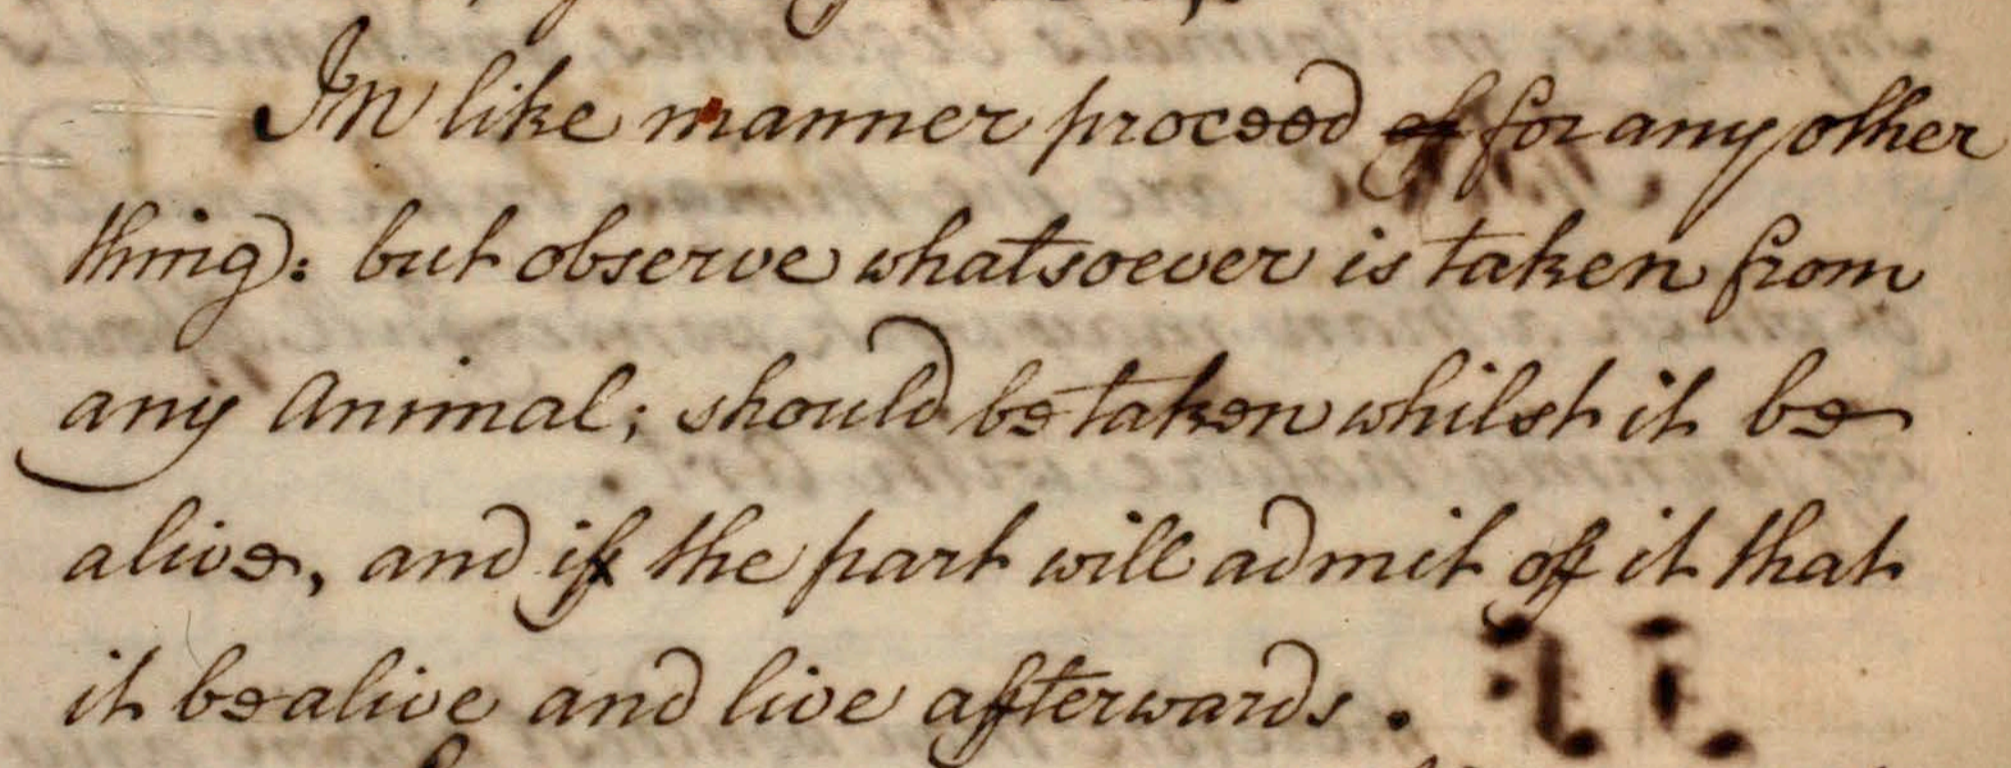 In like manner proceed of for any other
thing: but observe whatsoever is taken from
any Animal; should be taken whilst it be
alive, and if the part will admit of it that
it be alive and live afterwards.